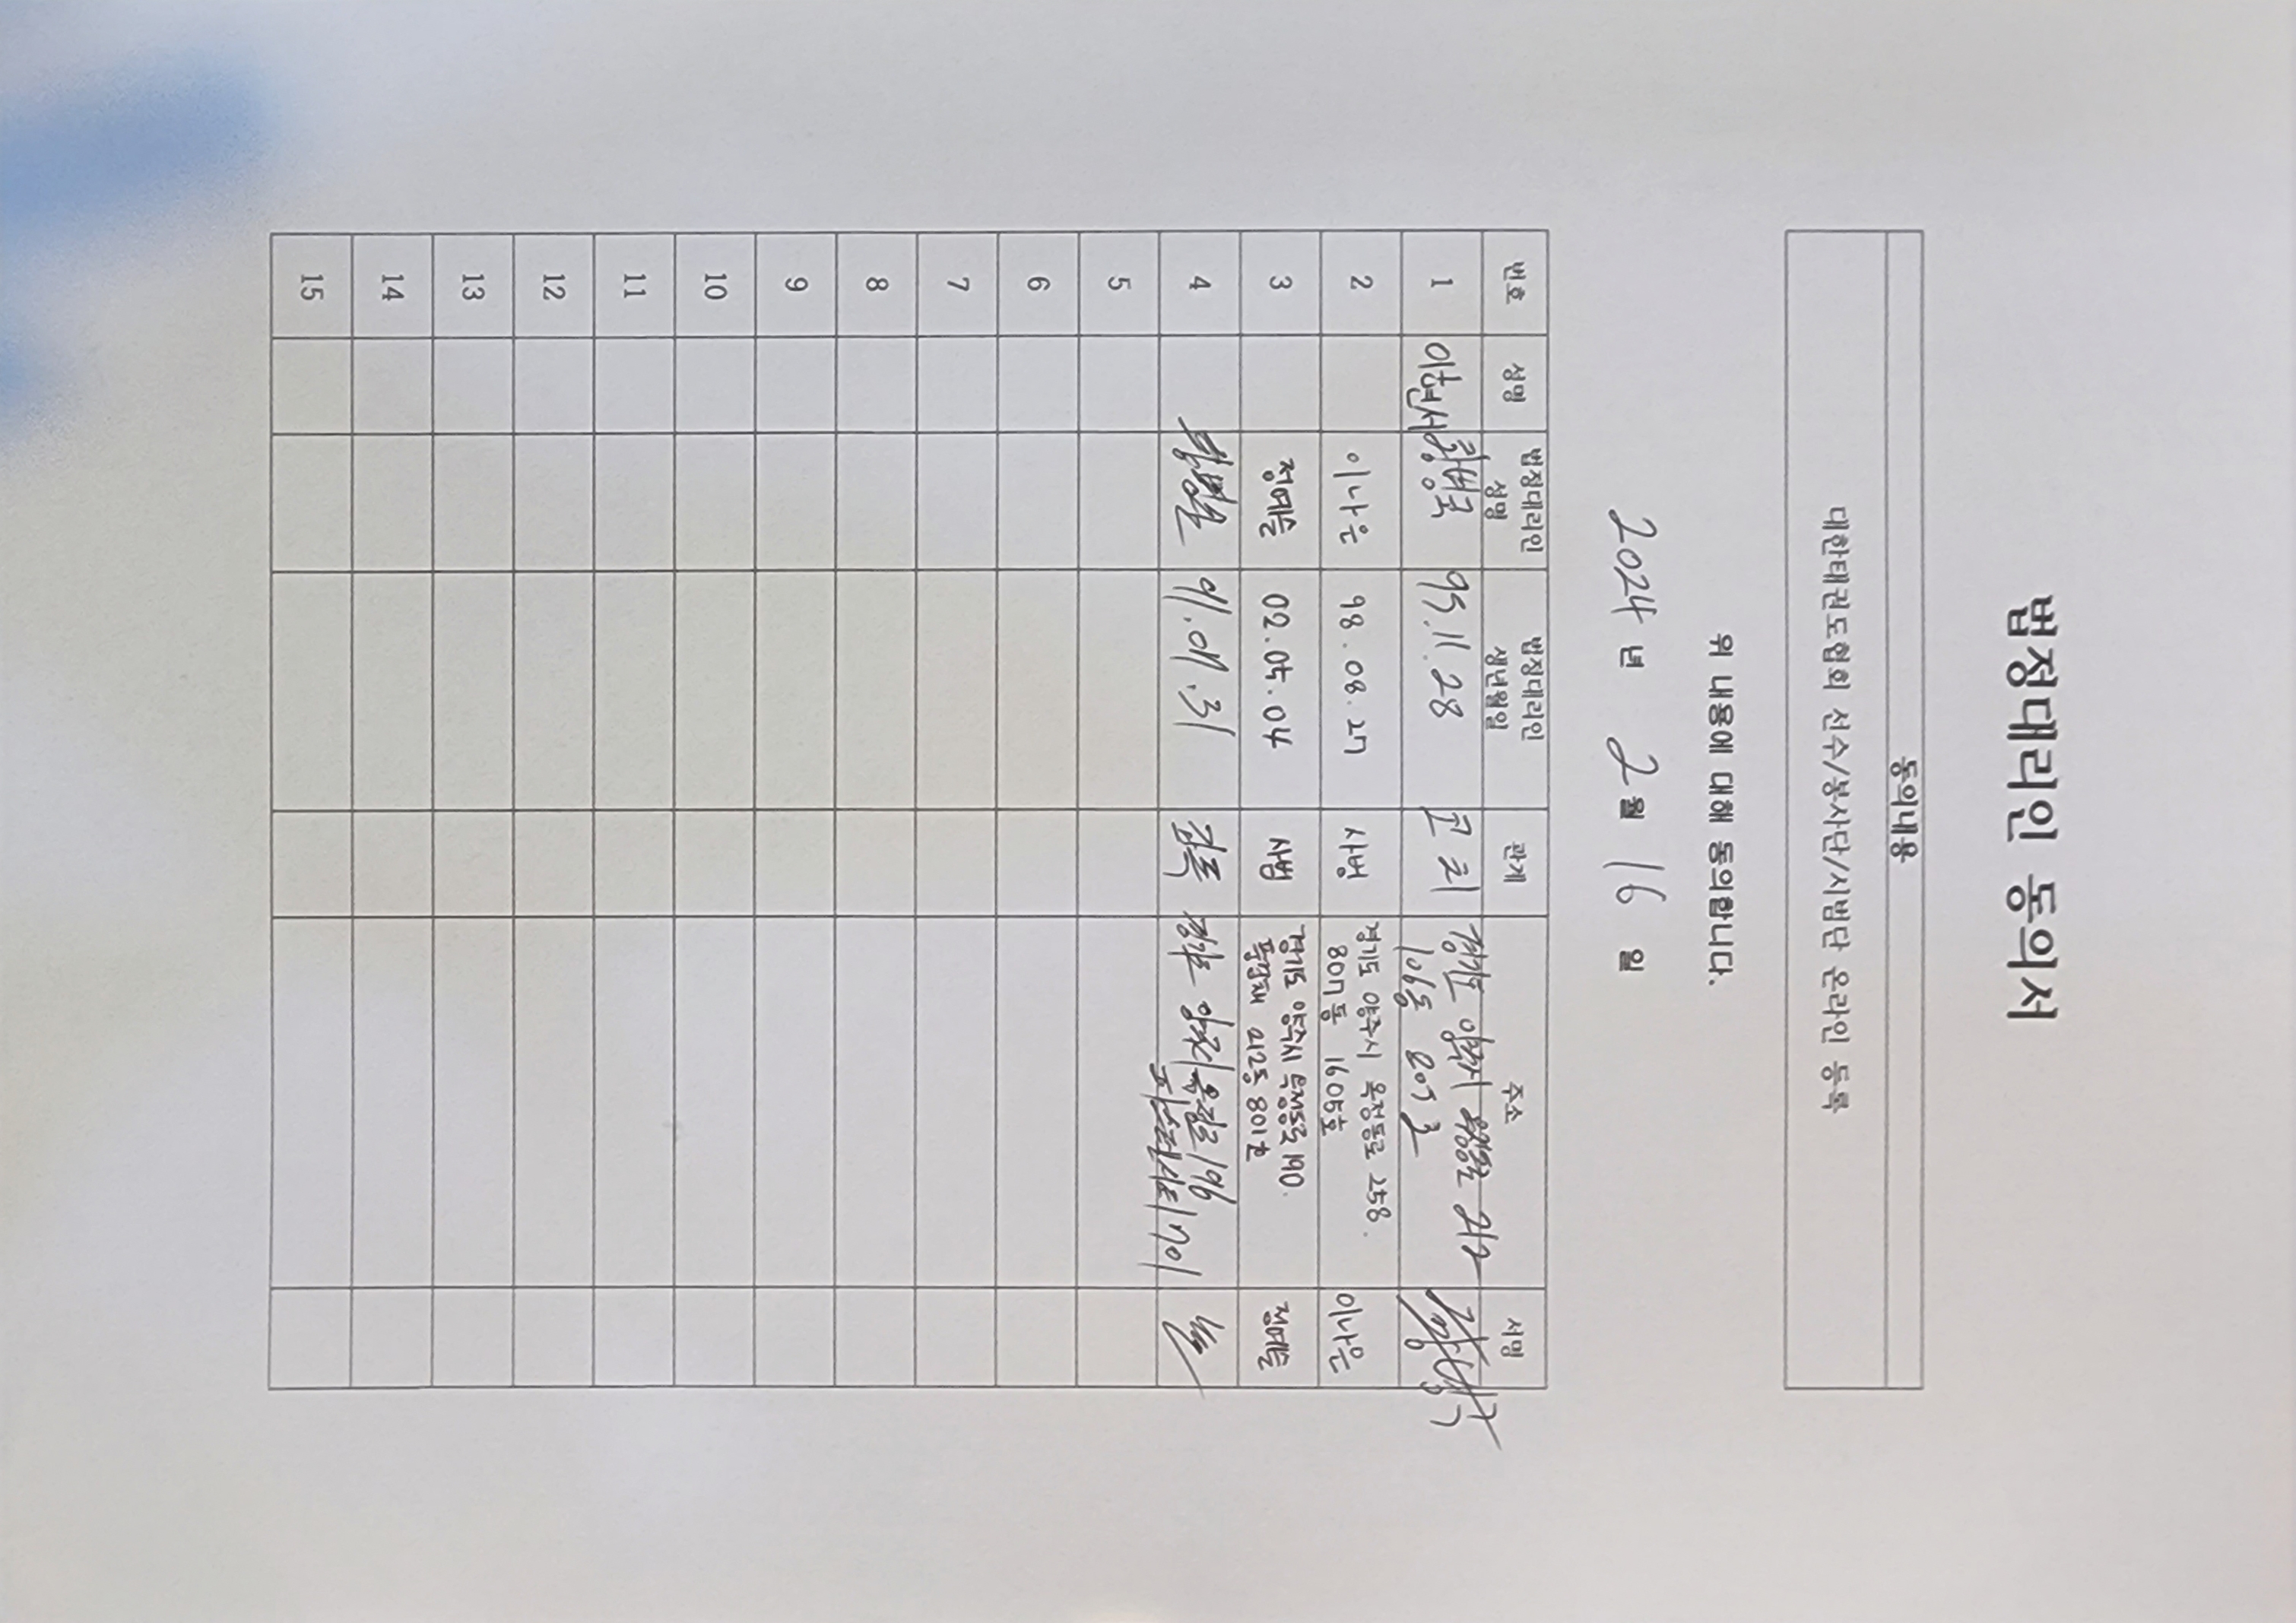 법정대리인 동의서
동의내용
대한태권도협회 선수/봉사단/시범단 온라인 등록
위 내용에 대해 동의합니다.
2024 년 2 월 16 일
번호 성명 법정대리인 성명 법정대리인 생년월일 관계 주소 서명
1 이현서 95.11.28 코치 106동 807호
2 이나은 98.08.27 사범 경기도 양주시 옥정동로 258. 이나은
807동 1605호
3 정예슬 02.05.04 사범 경기도 양주시 옥정동로 190. 정예슬
212동 801호
4 91.07.31 감독 196
1701
5
6
7
8
9
10
11
12
13
14
15